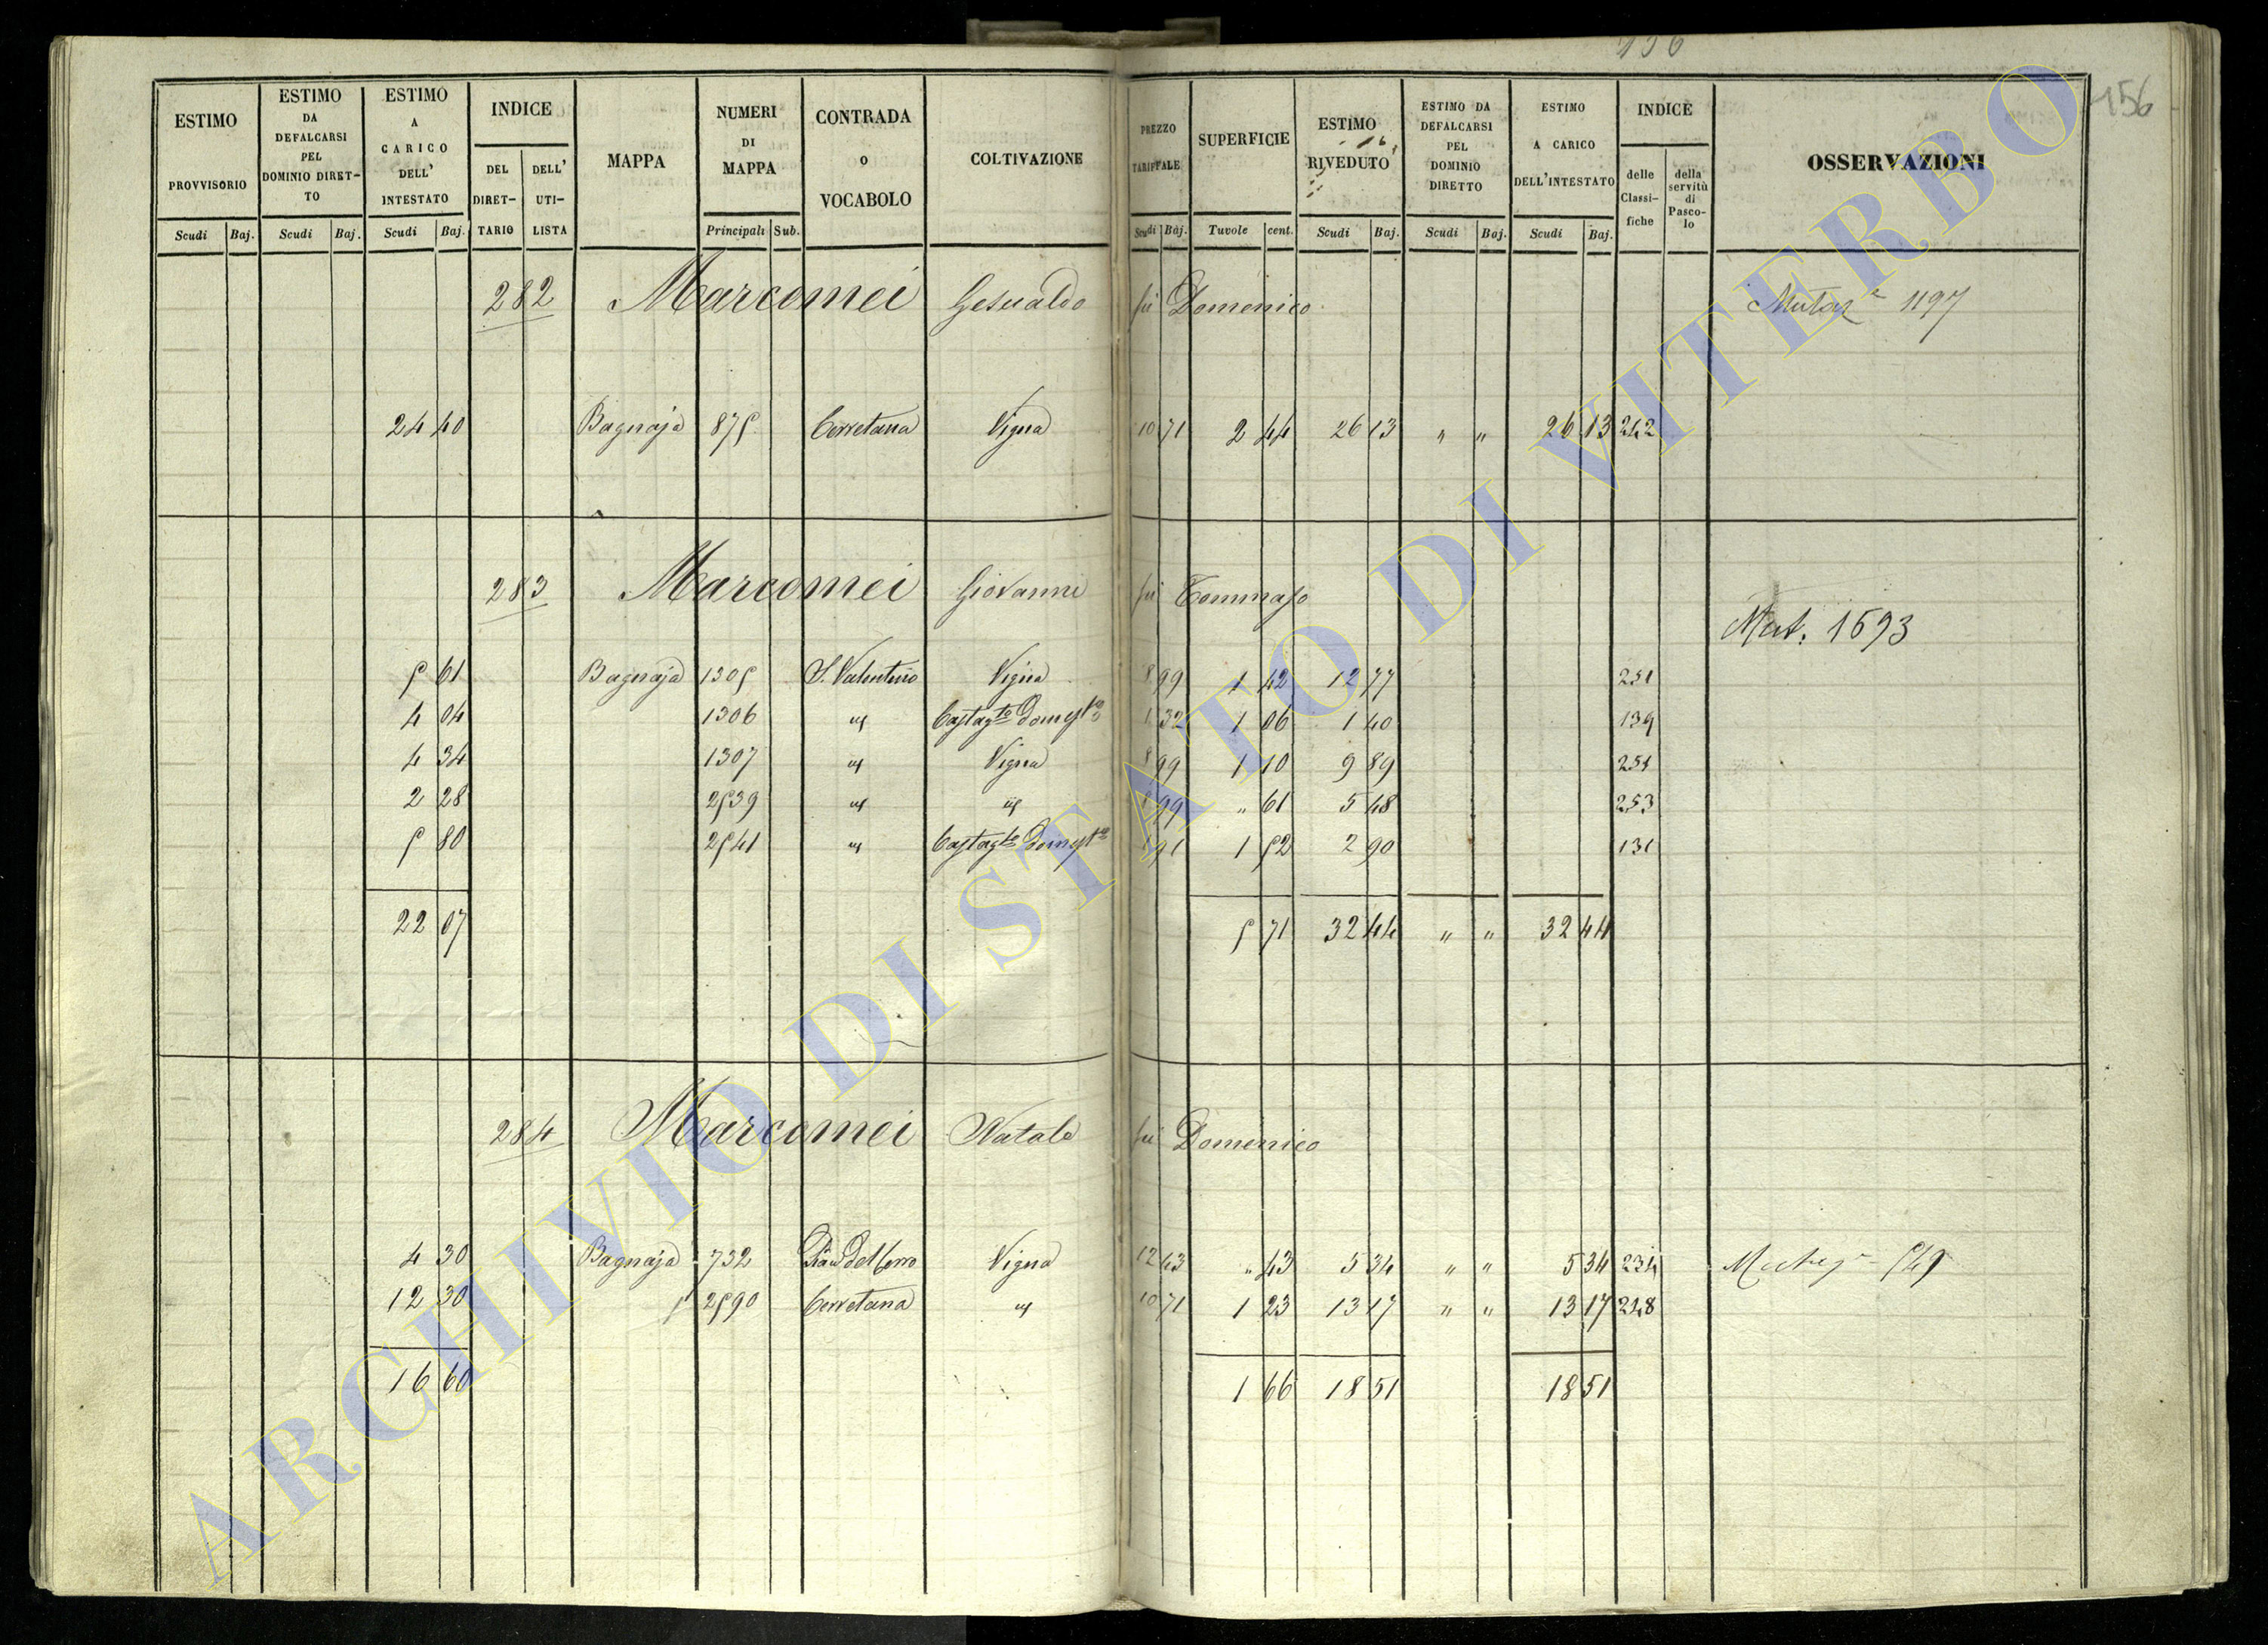 156
156
ESTIMO PROVVISORIO
ESTIMO DA DEFALCARSI PEL DOMINIO DIRET-TO
ESTIMO A CARICO DELL' INTESTATO
INDICE
DEL DIRET-TARIO
DELL' UTI-LISTA
MAPPA
NUMERI DI MAPPA
CONTRADA o VOCABOLO
COLTIVAZIONE
PREZZO TARIFFALE
SUPERFICIE
ESTIMO RIVEDUTO
ESTIMO DA DEFALCARSI PEL DOMINIO DIRETTO
ESTIMO A CARICO DELL'INTESTATO
INDICE
delle Classi-fiche
della servitù di Pasco-lo
OSSERVAZIONI
Scudi Baj. Scudi Baj. Scudi Baj. Principali Sub. Scudi Baj. Tavole cent. Scudi Baj. Scudi Baj. Scudi Baj.
282 Marcomei Gesualdo fu Domenico Mutaz.e 1197
24 40 Bagnaja 875 Cerretana Vigna 10 71 2 44 26 13 " " 26 13 242
283 Marcomei Giovanni fu Tommaso
Mut. 1693
5 61 Bagnaja 1305 S. Valentino Vigna 8 99 1 42 12 77 251
4 04 1306 " Castag.to Domest.o 1 32 1 06 1 40 139
4 34 1307 " Vigna 8 99 1 10 9 89 251
2 28 2539 " " 8 99 " 61 5 48 253
5 80 2541 " Castag.to Domest.o 1 91 1 52 2 90 131
22 07 5 71 32 44 " " 32 44
284 Marcomei Natale fu Domenico
4 30 Bagnaja 732 Pian del Cerro Vigna 12 43 " 43 5 34 " " 5 34 234 549
12 30 2590 Cerretana " 10 71 1 23 13 17 " " 13 17 248
16 60 1 66 18 51 18 51
ARCHIVIO DI STATO DI VITERBO